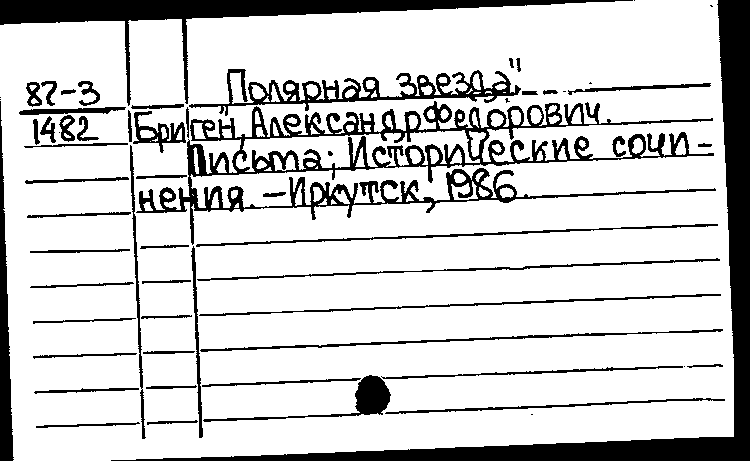 87-3 Полярная звезда".
1482 Бриген, Александр Федорович.
Письма; Исторические сочи-
нения. – Иркутск, 1986.